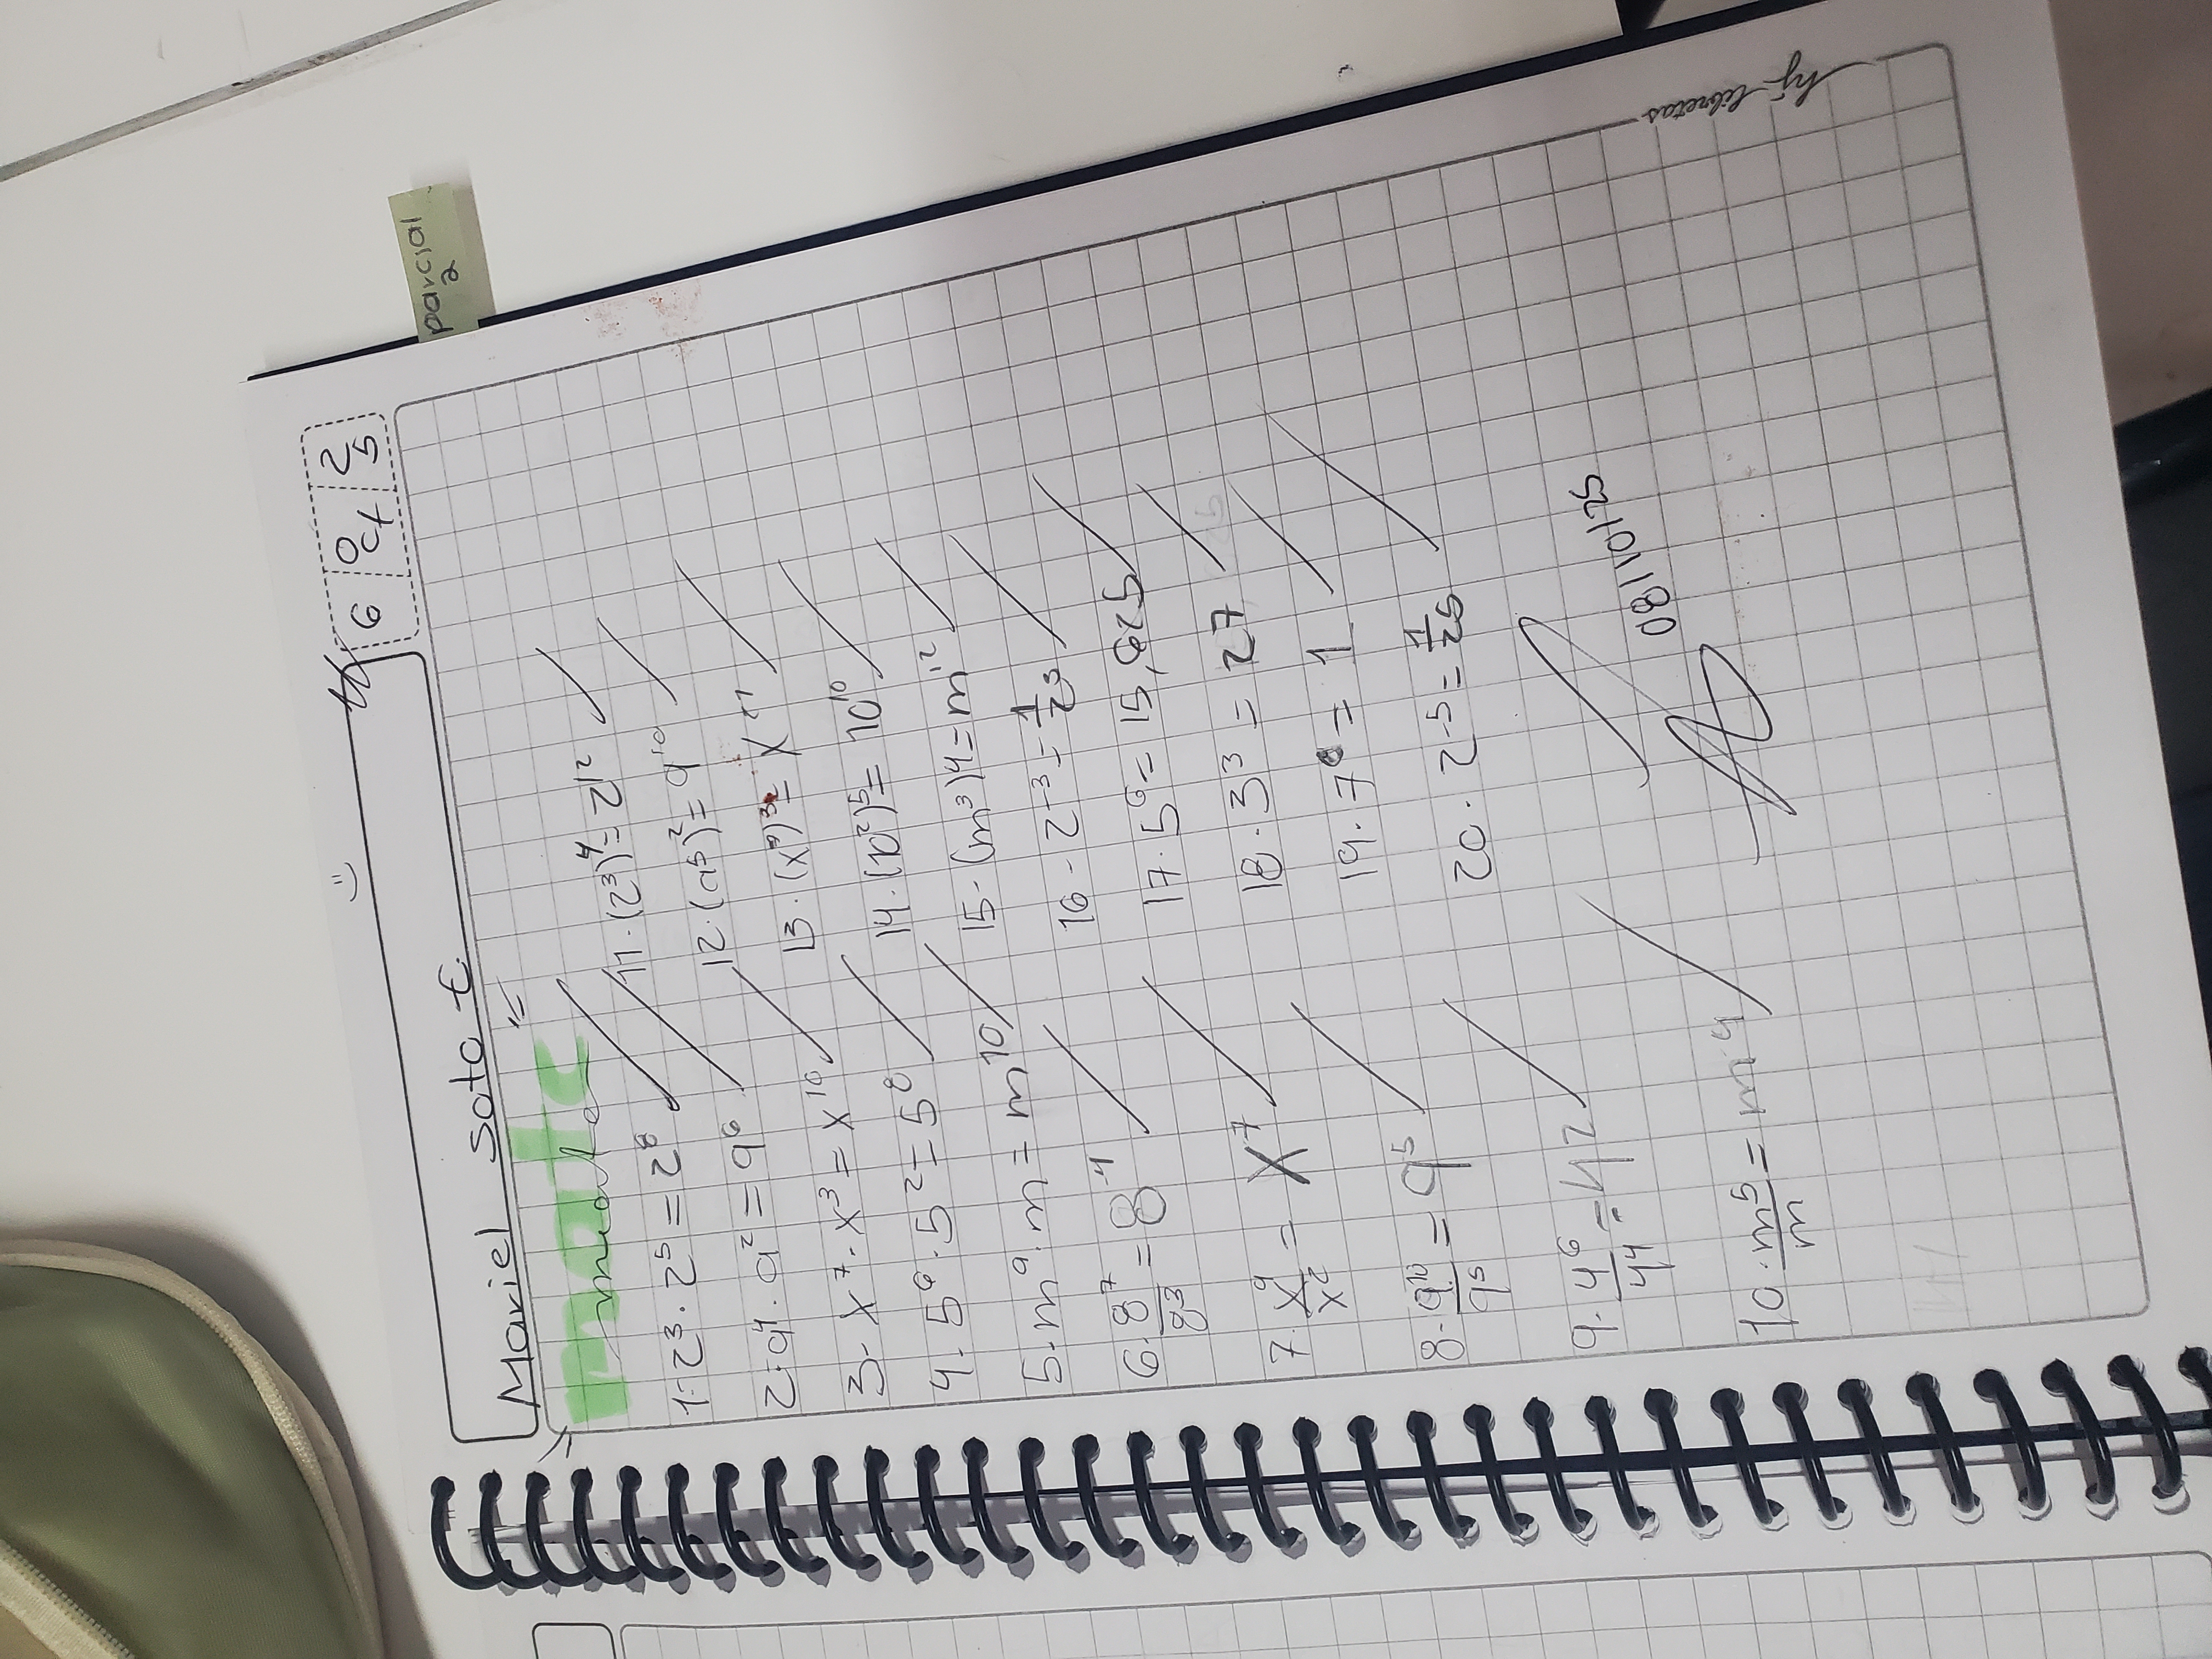 parcial
2
6 Oct 25
Mariel Soto E.
mate
1. 2³ · 2⁵ = 2⁸
2. a⁴ · a² = a⁶
3. x⁷ · x³ = x¹⁰
4. 5⁶ · 5² = 5⁸
5. m⁹ · m = m¹⁰
6. 8⁷/8³ = 8⁴
7. x⁹/x² = x⁷
8. 9¹⁰/9⁵ = 9⁵
9. 4⁶/4⁴ = 4²
10. m⁵/m = m⁴
11. (2³)⁴ = 2¹²
12. (a⁵)² = a¹⁰
13. (x⁹)³ = x²⁷
14. (10²)⁵ = 10¹⁰
15. (m³)⁴ = m¹²
16. 2⁻³ = 1/2³
17. 5⁶ = 15,625
18. 3³ = 27
19. 7⁰ = 1
20. 2⁻⁵ = 1/25
08/10/25
hj-libretas